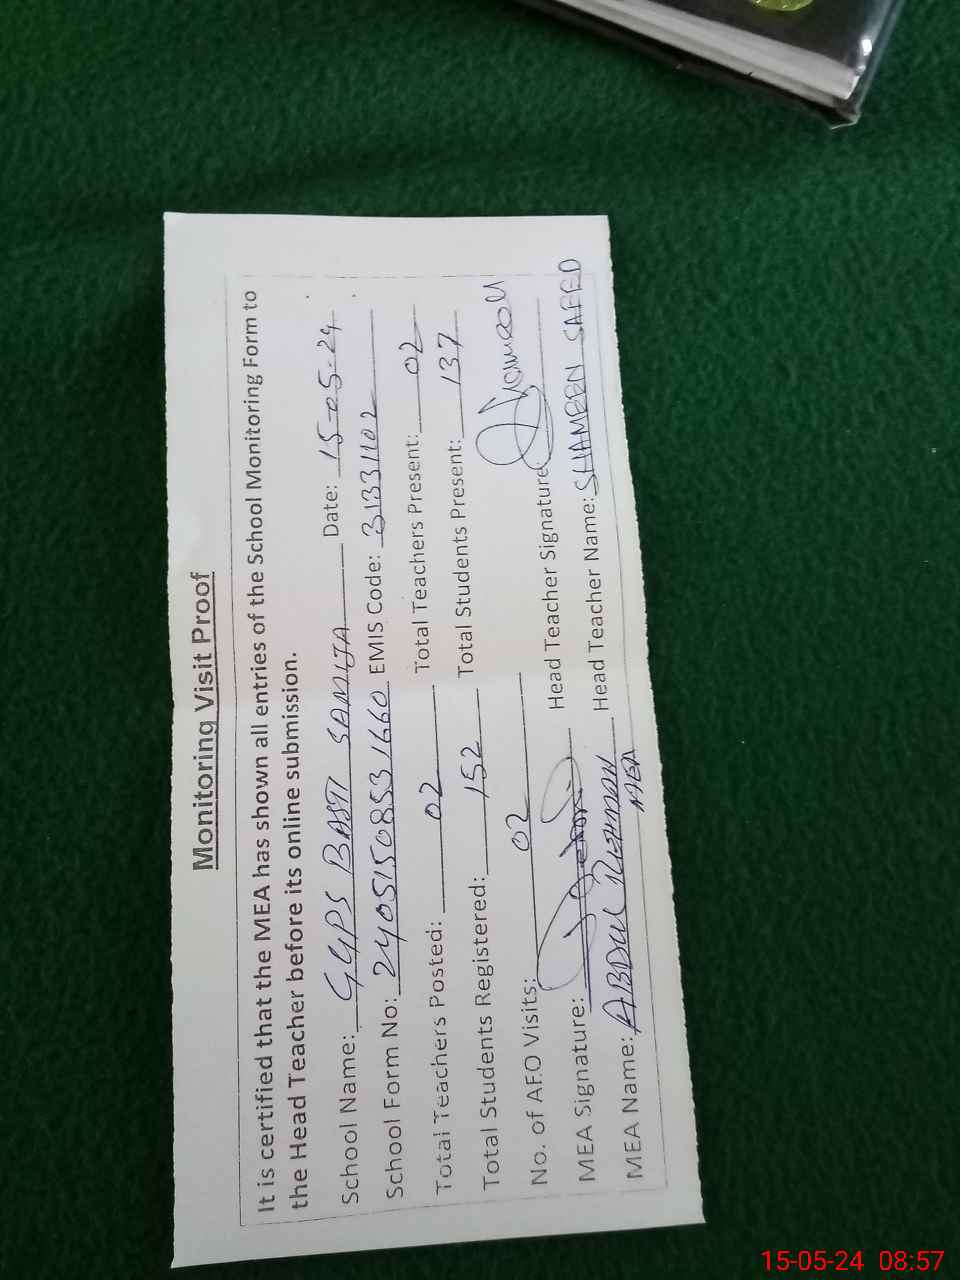 Monitoring Visit Proof
It is certified that the MEA has shown all entries of the School Monitoring Form to
the Head Teacher before its online submission.
School Name: GGPS BASTI SAMIJA Date: 15-05-24
School Form No: 24051508531660 EMIS Code: 31331102
Total Teachers Posted: 02 Total Teachers Present: 02
Total Students Registered: 152 Total Students Present: 137
No. of AEO Visits: 02
MEA Signature: Head Teacher Signature
MEA Name: ABDUL REHMAN Head Teacher Name: SHAMEEN SAEED
MEA
15-05-24 08:57